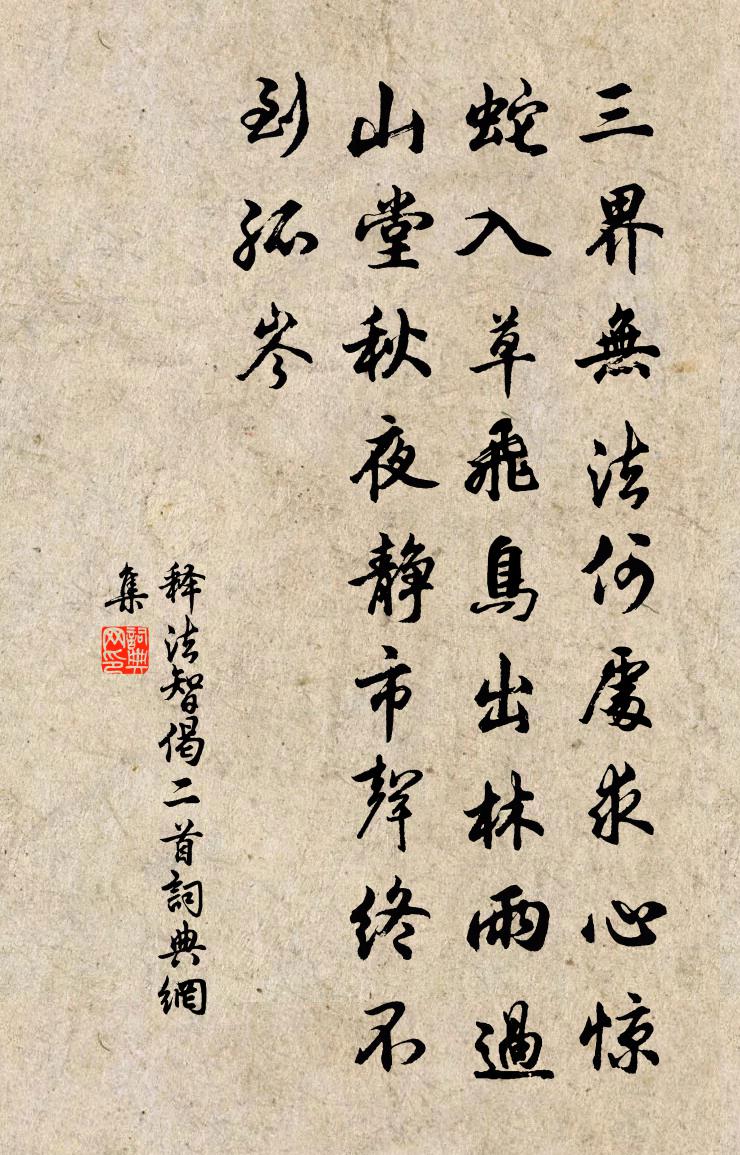 三界無法何處求心惊
蛇入草飛鳥出林雨過
山堂秋夜静市聲终不
到孤岑
释法智偈二首詞典網
集
詞典网印